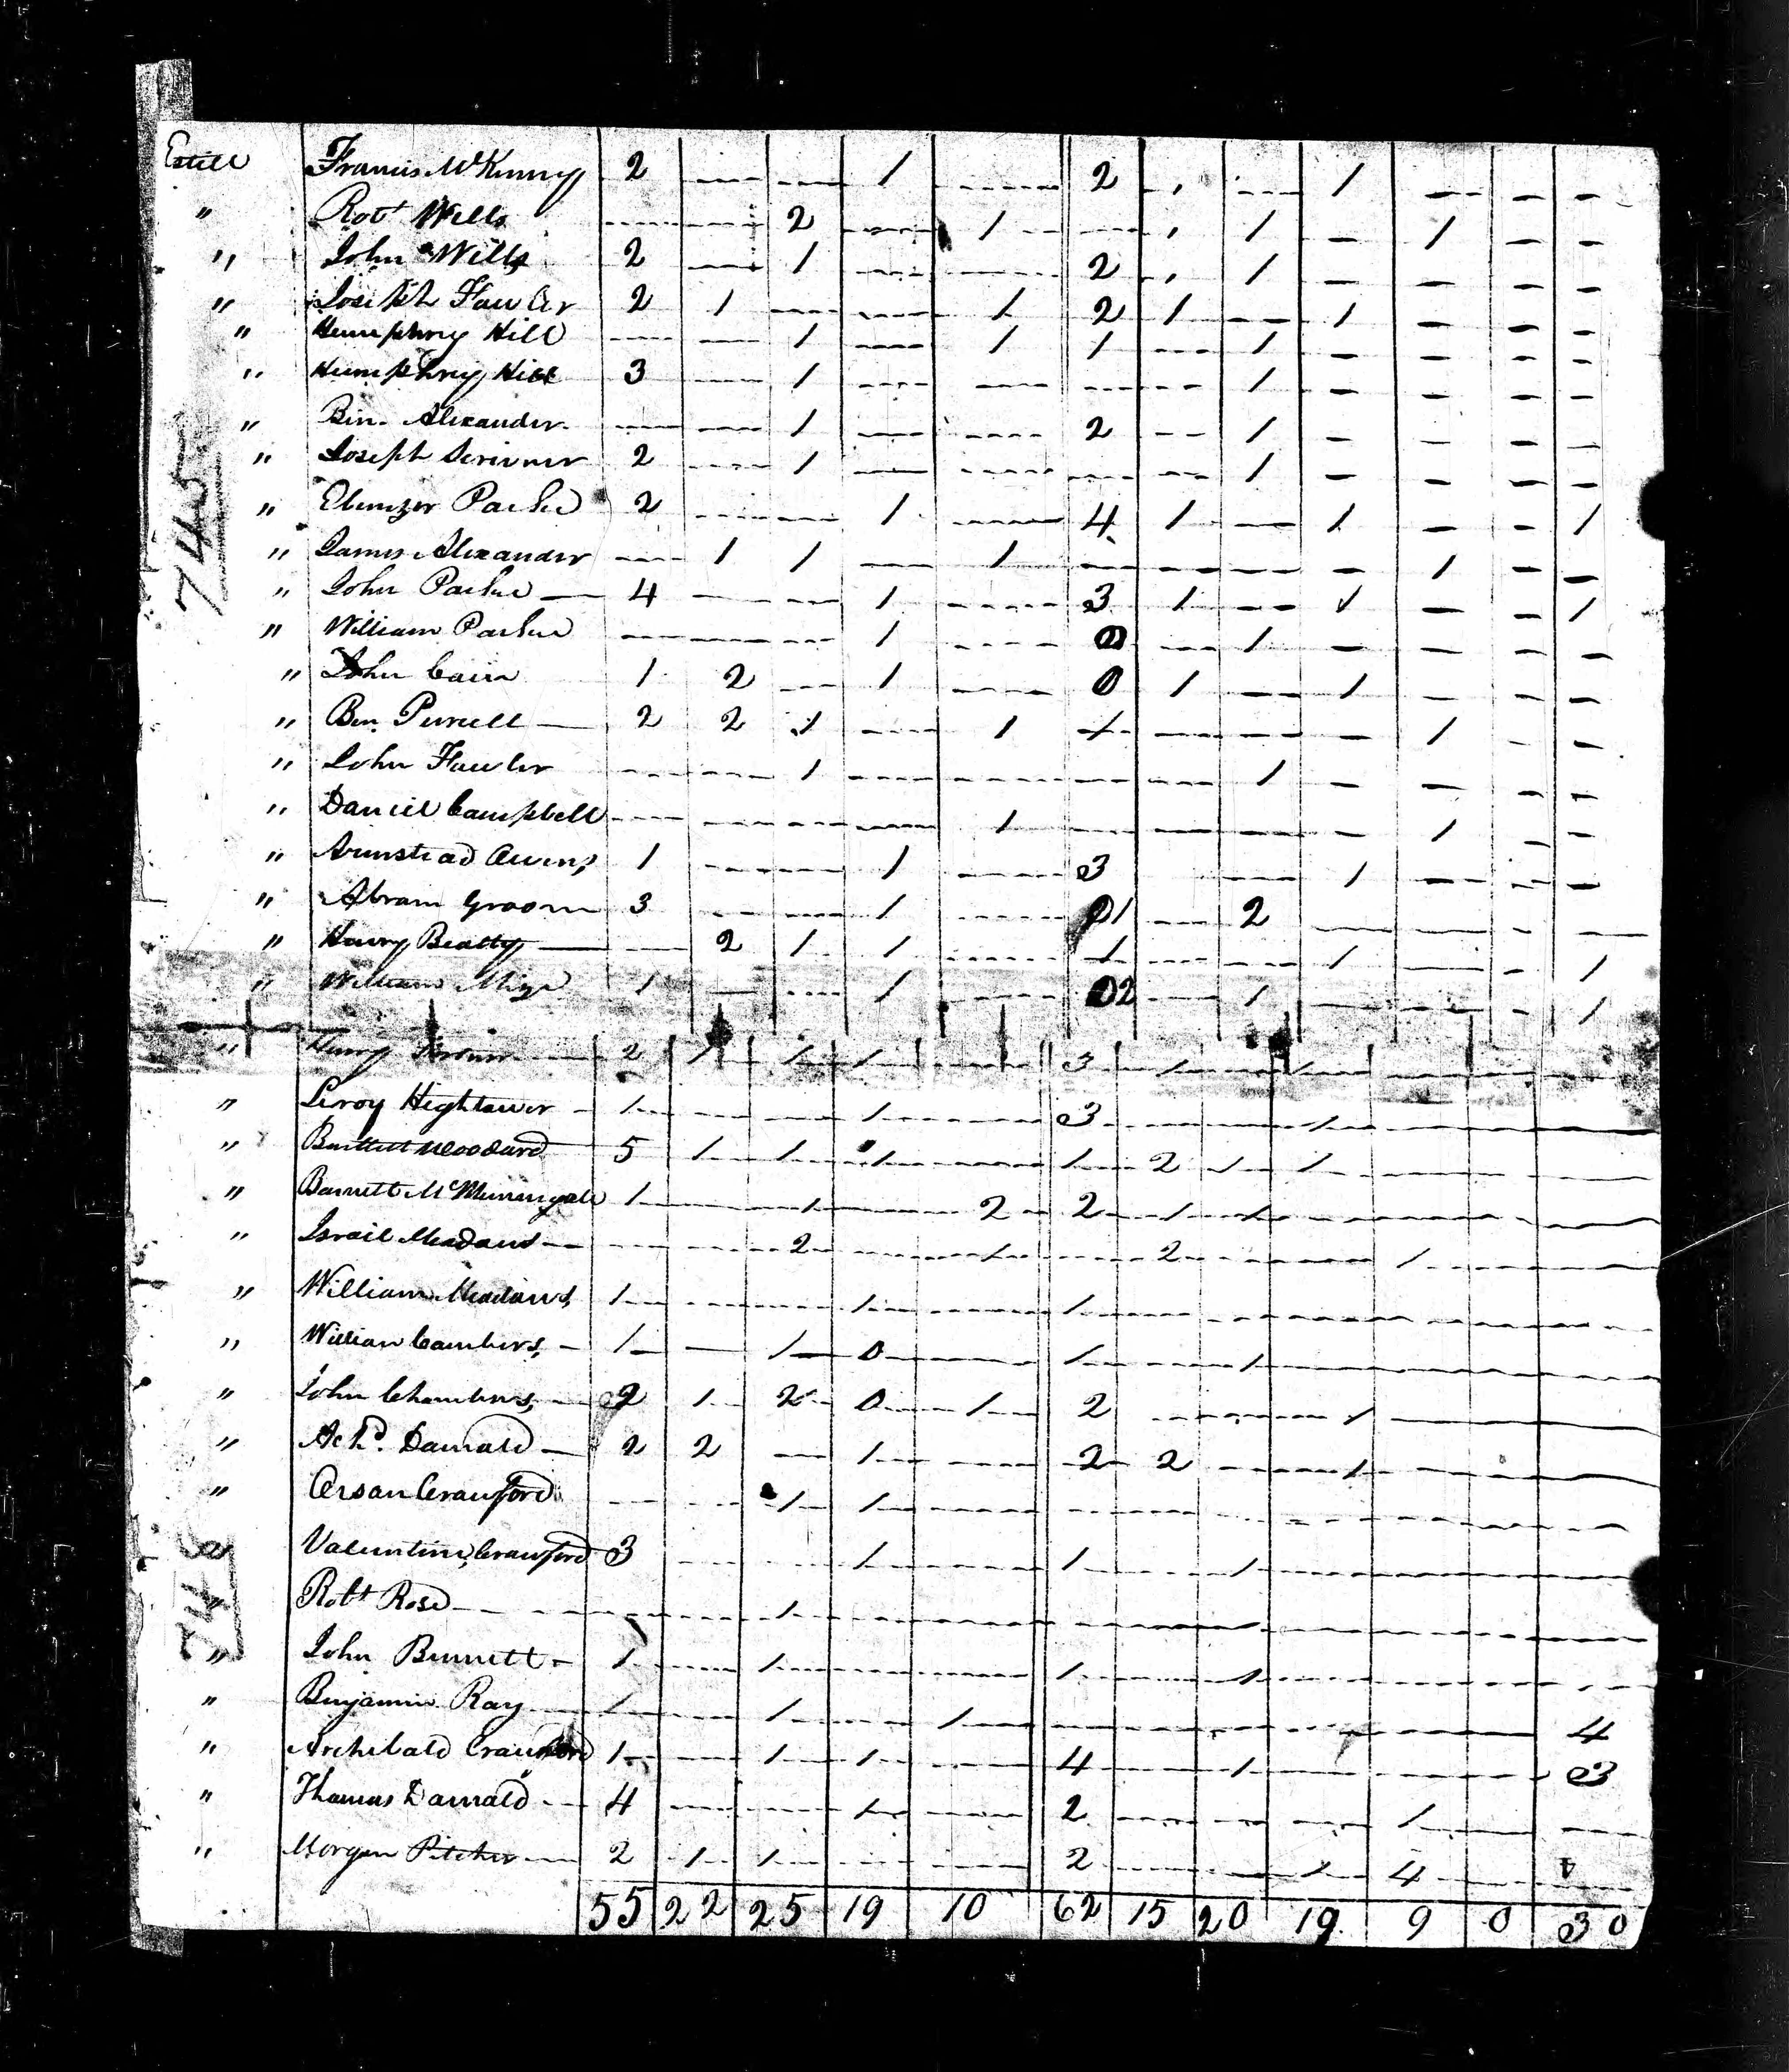 Estill Francis McKinney 2 — — 1 — 2 , — 1 — — —
" Robt Wells — — 2 — 1 — , 1 — 1 — —
" John Wills 2 — 1 — — 2 , 1 — — — —
" Joseph Fawler 2 1 — — 1 2 1 — 1 — — —
" Humphrey Hill — — 1 — 1 1 — 1 — — — —
" Humphrey Hill 3 — 1 — — — — 1 — — — —
" Ben. Alexander — — 1 — — 2 — 1 — — — —
" Joseph Scrivner 2 — 1 — — — — 1 — — — —
" Ebenezer Parke 2 — — 1 — 4 1 — 1 — — 1
" James Alexander — 1 1 — 1 — — — — 1 — —
" John Parke 4 — — 1 — 3 1 — 1 — — 1
" William Parke — — — 1 — 0 — 1 — — — —
" John Cain 1 2 — 1 — 0 1 — 1 — — —
" Ben Purcell 2 2 1 — 1 1 — — — 1 — —
" John Fawler — — 1 — — — — 1 — — — —
" Daniel Campbell — — — — 1 — — — — 1 — —
" Armstead Owens 1 — — 1 — 3 — 1 — — —
" Abram Groom 3 — — 1 — 1 — 2 — — — —
" Henry Beatty — 2 1 1 — 1 — — 1 — — 1
" William Mize 1 — — 1 — 2 — 1 — — — 1
745
" Henry 2 1 1 1 — 3 1 — 1 — — —
" Leroy Hightower 1 — — 1 — 3 — — 1 — — —
" Bartlett Woodard 5 1 1 1 — 1 2 1 1 — — —
" Barnett 1 — 1 — 2 2 1 1 — — — —
" Israil Meadows — — 2 — 1 — 2 — — 1 — —
" William Meadows 1 — — 1 — 1 — — — — — —
" William Cambers 1 — 1 0 — 1 — 1 — — — —
" John Chambers 2 1 2 0 1 2 — — 1 — — —
" Achd. Darnald 2 2 — 1 — 2 2 — 1 — — —
" Crawford — — 1 1 — — — — — — — —
Valuntine Crawford 3 — — 1 — 1 — 1 — — — —
" Robt Rose — — 1 — — — — 1 — — — —
" John Burnett 1 — 1 — — 1 — 1 — — — —
" Benjamin Ray 1 — 1 — 1 — — — — — — 4
" Archibald Crawford 1 — 1 1 — 4 — 1 — — — 3
" Thomas Darnald 4 — — 1 — 2 — — — 1 — —
" Morgan Pitcher 2 1 1 — — 2 — — 1 4 —
746
55 22 25 19 10 62 15 20 19 9 0 30